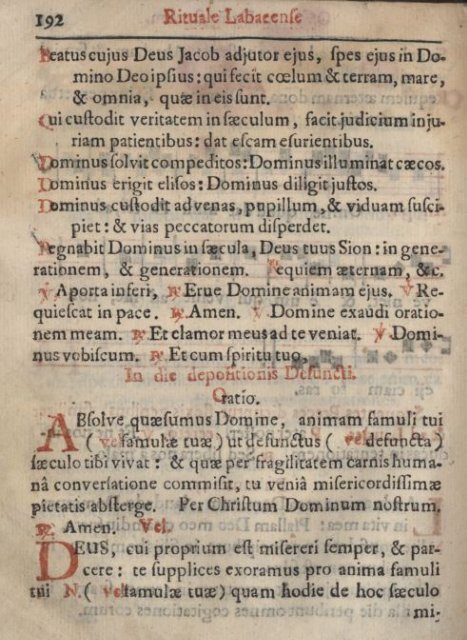 192 Rituale Labacense
Beatus cujus Deus Jacob adjutor ejus, spes ejus in Do-
mino Deo ipsius: qui fecit cœlum & terram, mare,
& omnia, quæ in eis sunt.
Qui custodit veritatem in sæculum, facit judicium inju-
riam patientibus: dat escam esurientibus.
Dominus solvit compeditos: Dominus illuminat cæcos.
Dominus erigit elisos: Dominus diligit justos.
Dominus custodit advenas, pupillum, & viduam susci-
piet: & vias peccatorum disperdet.
Regnabit Dominus in sæcula, Deus tuus Sion: in gene-
rationem, & generationem. Requiem æternam, &c.
℣ A porta inferi, ℟ Erue Domine animam ejus. ℣ Re-
quiescat in pace. ℟. Amen. ℣ Domine exaudi oratio-
nem meam. ℟. Et clamor meus ad te veniat. ℣ Domi-
nus vobiscum. ℟. Et cum spiritu tuo,
In die depositionis Defuncti.
Oratio.
ABsolve quæsumus Domine, animam famuli tui
( vel famulæ tuæ) ut defunctus ( vel defuncta )
sæculo tibi vivat: & quæ per fragilitatem carnis huma-
nâ conversatione commisit, tu veniâ misericordissimæ
pietatis absterge. Per Christum Dominum nostrum.
℟. Amen. Vel.
DEUS, cui proprium est misereri semper, & par-
cere: te supplices exoramus pro anima famuli
tui N. ( vel famulæ tuæ) quam hodie de hoc sæculo
mi-